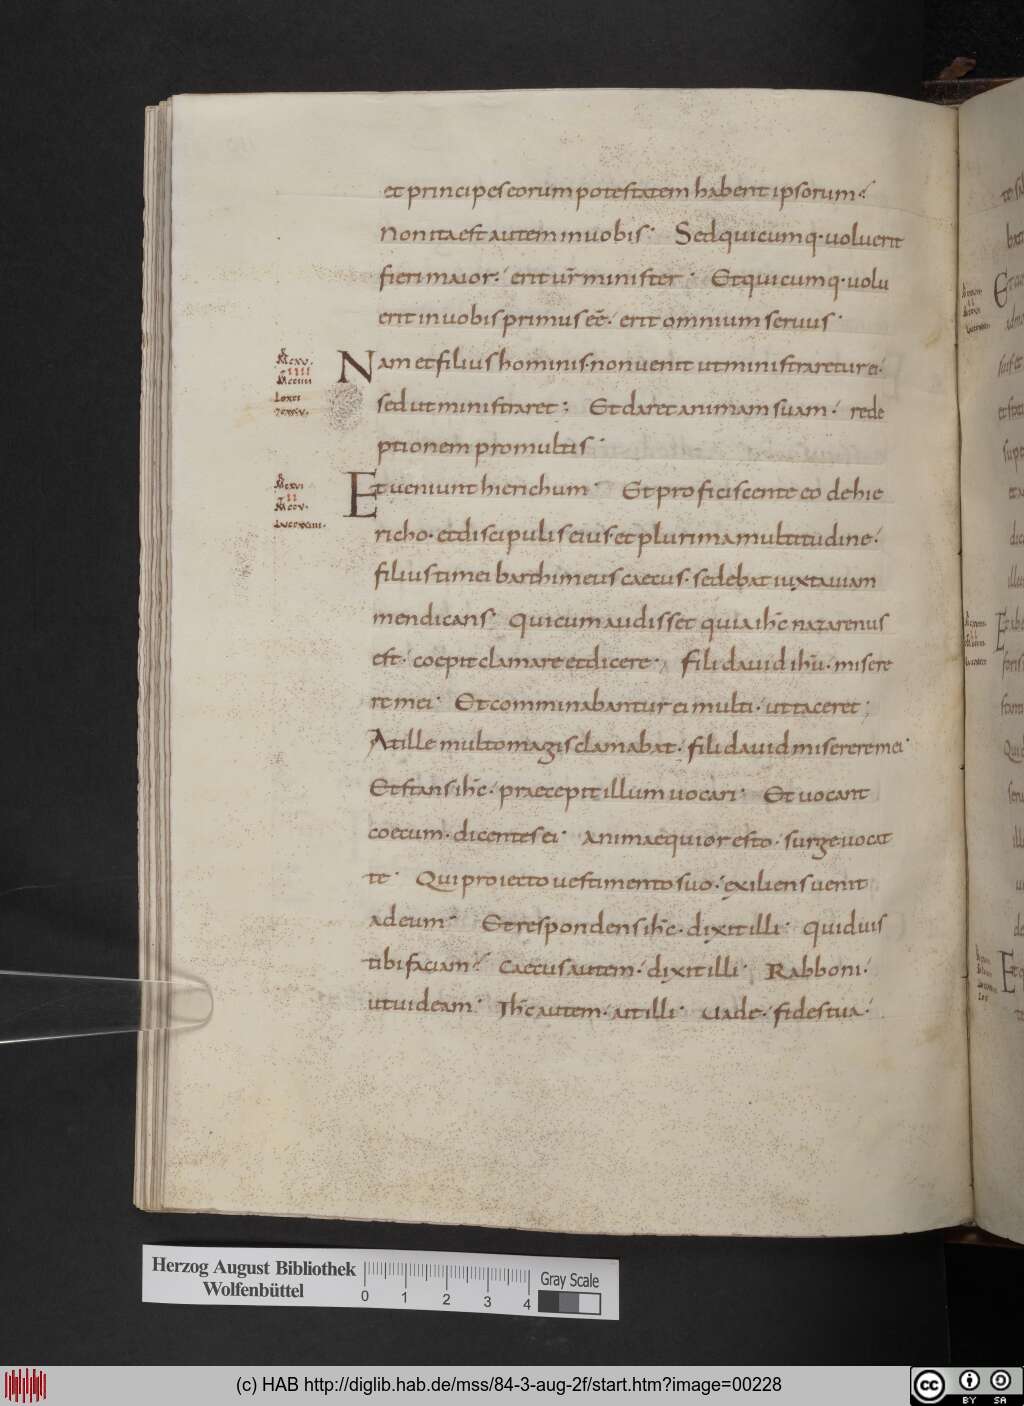 et principes eorum potestatem habent ipsorum ·
Non ita est autem in uobis · Sed quicumq· uoluerit
fieri maior · erit ur̄ minister · Et quicumq· uolu
erit in uobis primus eē · erit omnium seruus ·
Nam et filius hominis · non uenit ut ministraretur ei ·
sed ut ministraret ; Et daret animam suam · rede
ptionem pro multis ·
Et ueniunt hierichum · Et proficiscente eo de hie
richo · et discipulis eius · et plurima multitudine ·
filius timei barthimeus caecus · sedebat iuxta uiam
mendicans · Qui cum audisset quia ihc̄ nazarenus
est · coepit clamare et dicere · fili dauid ihū · misere
re mei · Et comminabantur ei multi · ut taceret ;
At ille multo magis clamabat · fili dauid miserere mei ·
Et stans ihc̄ · praecepit illum uocari · Et uocant
coecum · dicentes ei · animaequior esto · surge uocat
te · Qui proiecto uestimento suo · exiliens uenit
ad eum · Et respondens ihc̄ · dixit illi · quid uis
tibi faciam · caecus autem · dixit illi · Rabboni ·
ut uideam · Ihc̄ autem · ait illi · uade · fides tua ·
Herzog August Bibliothek
Wolfenbüttel
0 1 2 3 4
Gray Scale
(c) HAB http://diglib.hab.de/mss/84-3-aug-2f/start.htm?image=00228
cc BY SA